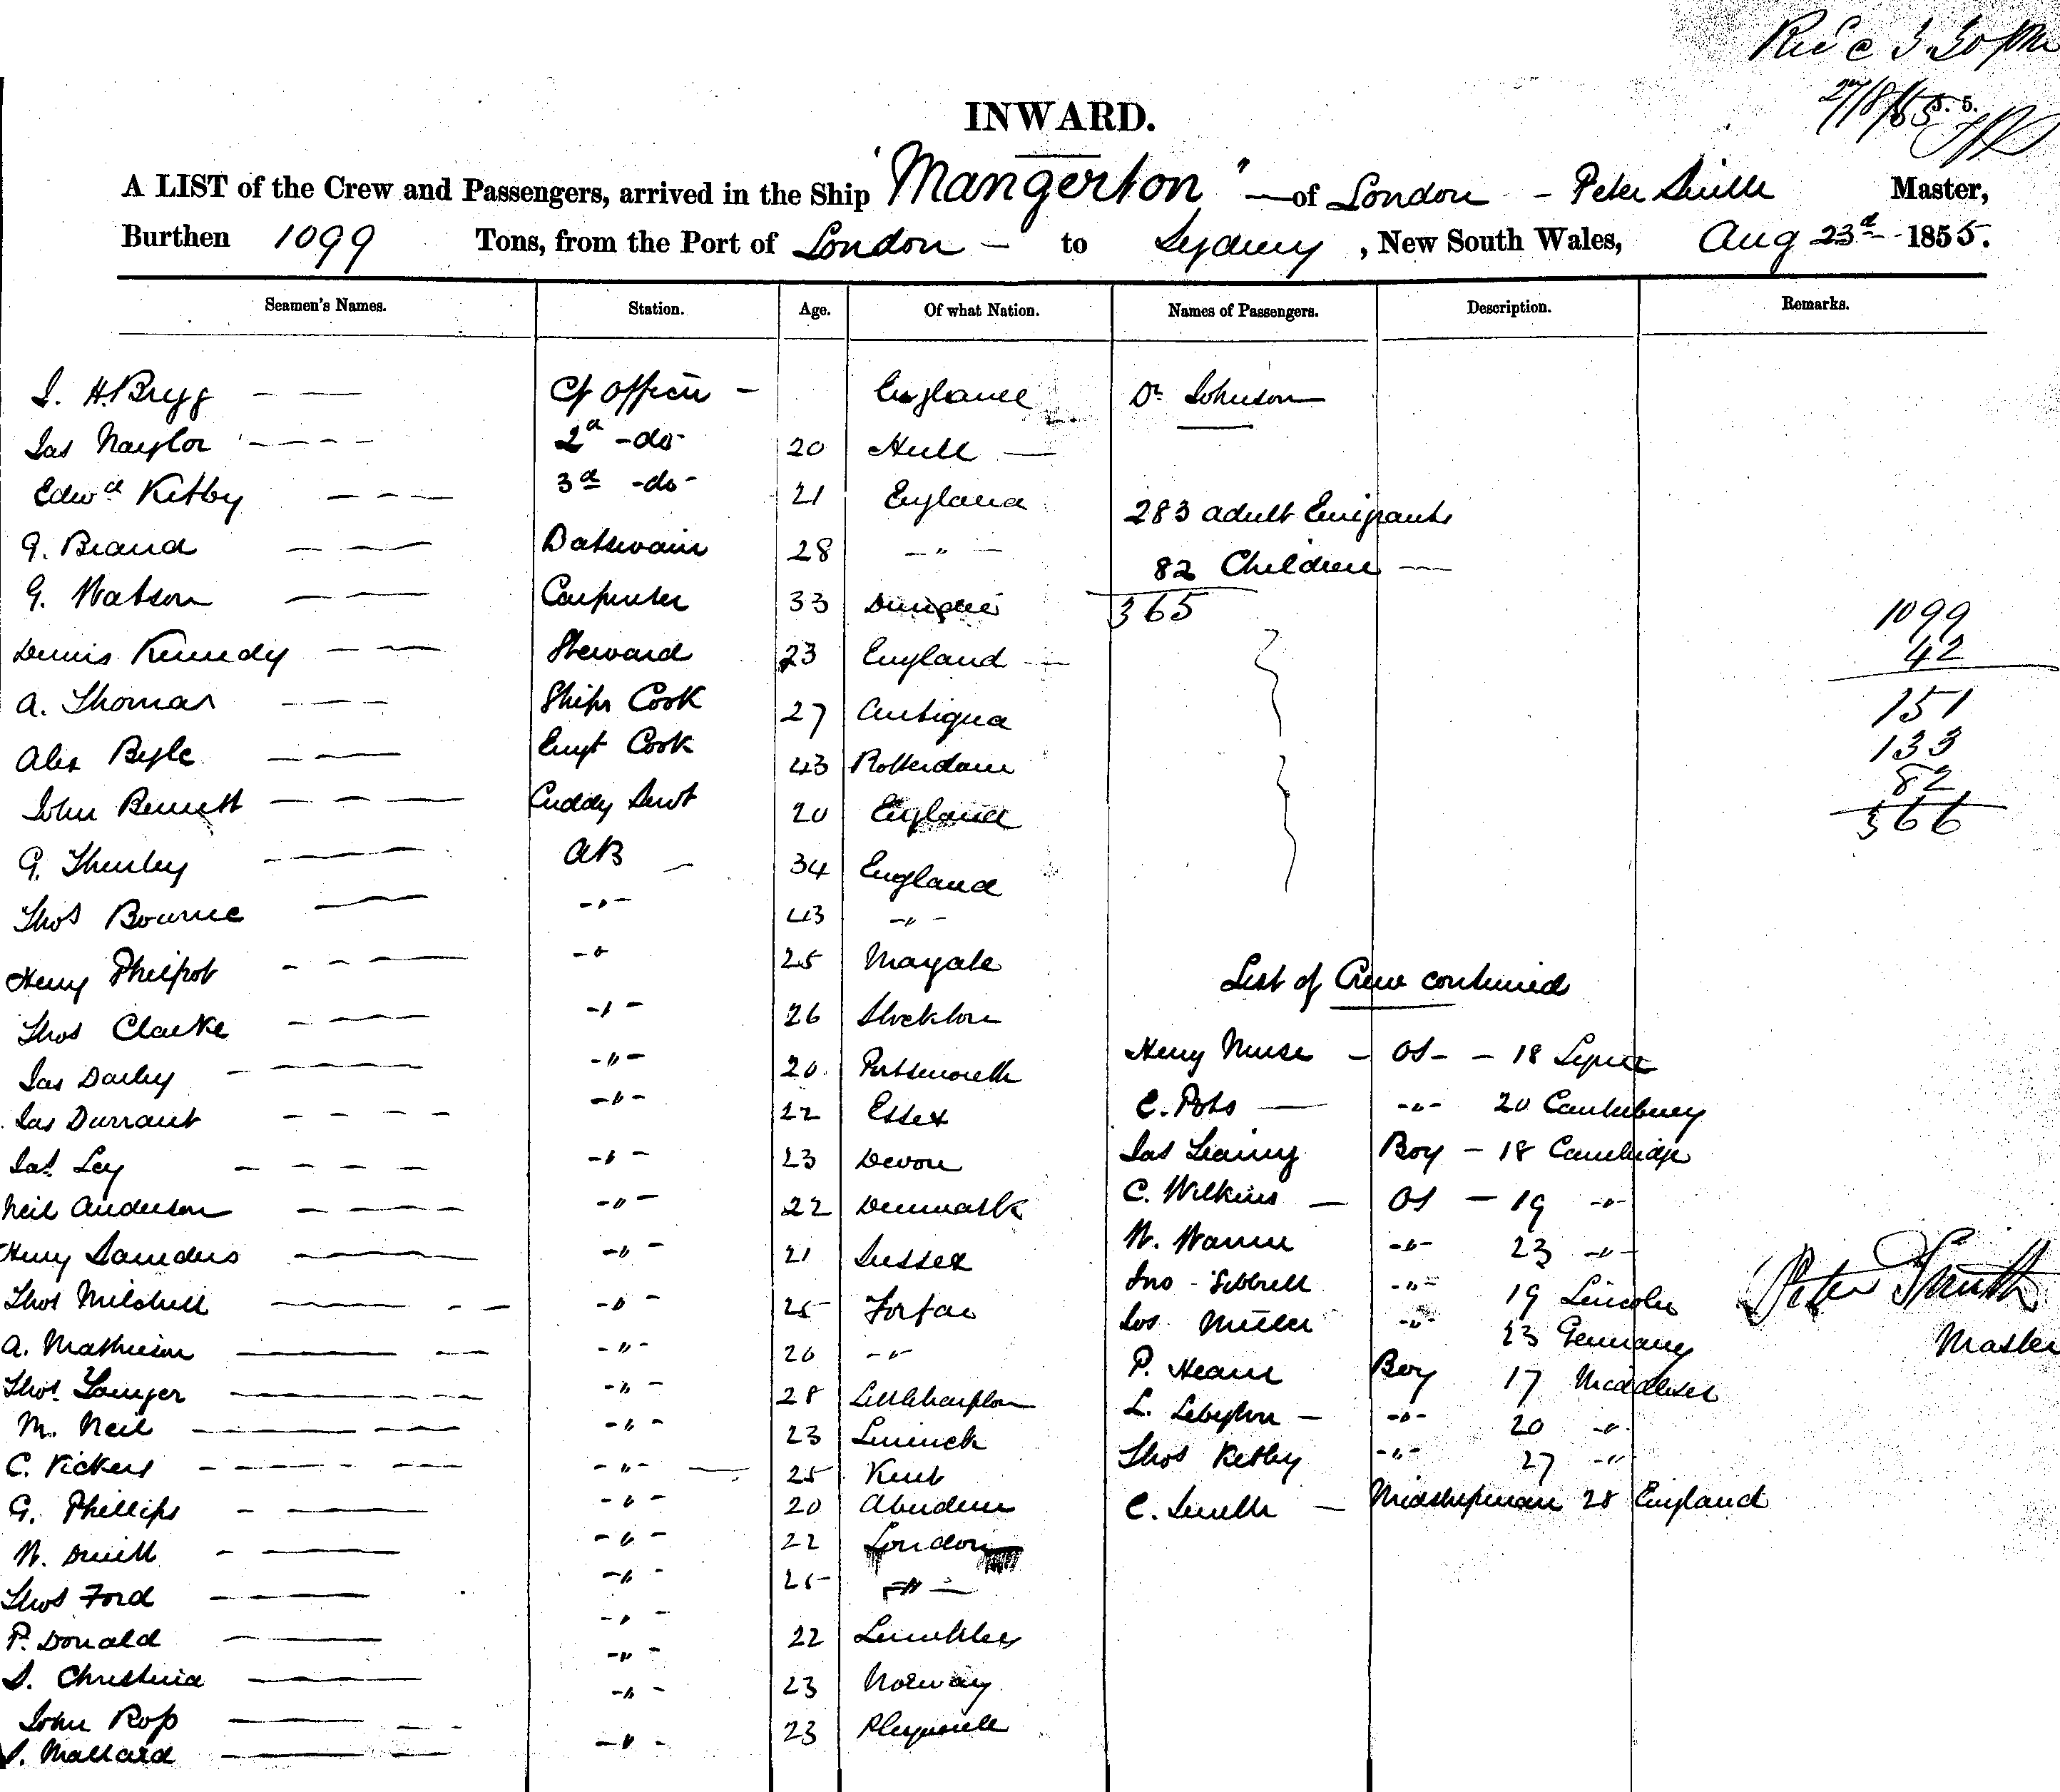 Rec'd @ 3.30 pm
27/8/55
J. 5.
INWARD.
A LIST of the Crew and Passengers, arrived in the Ship "Mangerton" — of London — Peter Smith Master,
Burthen 1099 Tons, from the Port of London — to Sydney, New South Wales, Aug 23d 1855.
Seamen's Names. Station. Age. Of what Nation. Names of Passengers. Description. Remarks.
J. H. Bregg — — Cf Officer — England Dr Johnson
Jas Naylor — — — — 2d -do- 20 Hull —
Edwd Ketby — — — 3d -do- 21 England
283 adult Emigrants
G. Brand — — — Batswain 28 — " —
82 Children —
G. Watson — — Carpenter 33 365
1099
Dennis Kennedy — — Steward 23 England —
42
A. Thomas — — — Ships Cook 27 Antigua
151
Alex — — — Emgt Cook 43 Rotterdam
133
82
John Bennett — — — Cuddy Servt 20 England
366
G. Thurley — — AB — 34 England
Thos Bourne — — - " - 43 - " -
Henry Philpot — — — - " 25 Magate
List of Crew continued
Thos Clarke — — - " - 26 Stockton
Henry Nurse — OS - — 18
Jas Darley — — — - " - 20 Portsmouth
C. Pots — - " - 20 Canterbury
Jas Durrant — — — — - " - 22 Essex
Jas Leanny Boy — 18 Cambridge
Jas. Ley — — — — - " - 23 Devon
C. Wilkins — OS — 19 - " -
Neil Anderson — — — — - " - 22 Denmark
W. Warren - " - 23 - " -
Henry Saunders — — — - " - 21 Sussex
Jno - - " - 19 Lincoln
Peter Smith
Thos Mitchell — — — - " - 25 Forfar
Jos Muller - " - 23 Germany
Master
A. Mathieson — — - " - 20 - " -
P. Hearn Boy 17 Middlesex
Thos. Younger — — — - " - 28 Littlehampton
L. — - " - 20 - " -
M. Neil — — — - " - 23 Limerick
Thos Ketby - " - 27 - " -
C. Vickers — — — — - " - — 25 Kent
G. Phillips - — - " - 20 Aberdeen
C. Smith — Midshipman 28 England
W. Smith - — - " - 22 London
Thos Ford — — - " - 25 - " -
P. Donald — — - " - 22
S. Christina — — - " - 23 Norway
John Ross — — — - " - 23 Plymouth
J. Mallard — — - " -